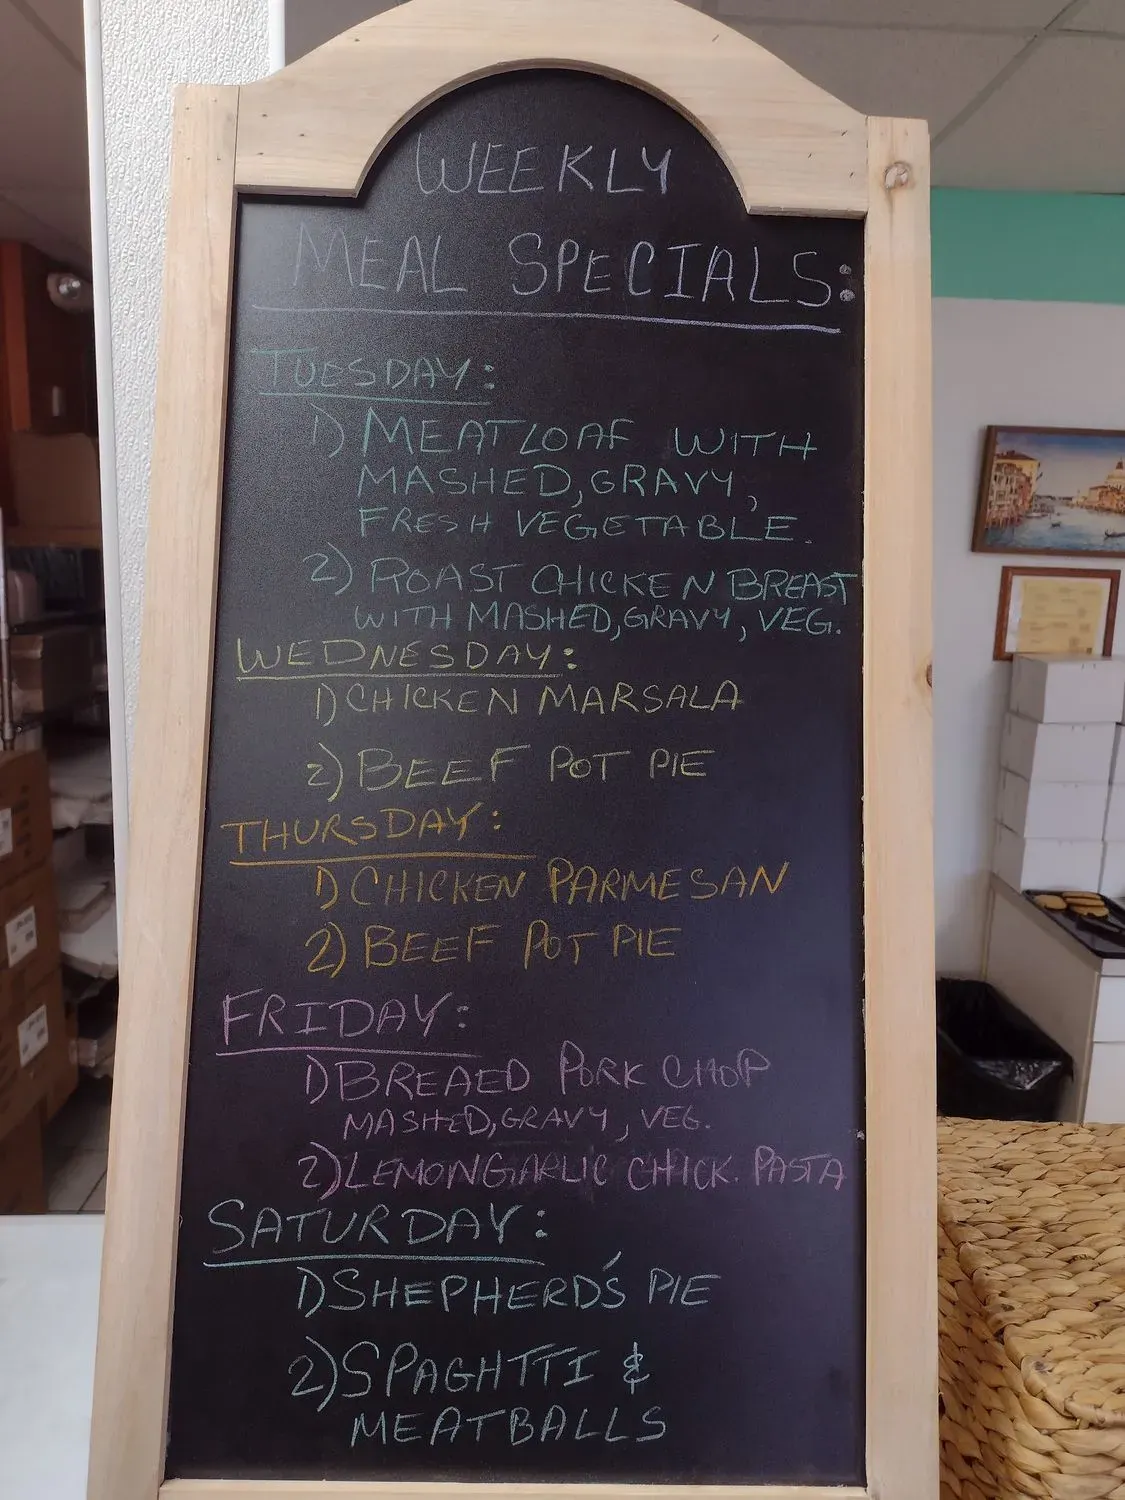 WEEKLY
MEAL SPECIALS:
TUESDAY:
1) MEATLOAF WITH
MASHED, GRAVY,
FRESH VEGETABLE.
2) ROAST CHICKEN BREAST
WITH MASHED, GRAVY, VEG.
WEDNESDAY:
1) CHICKEN MARSALA
2) BEEF POT PIE
THURSDAY:
1) CHICKEN PARMESAN
2) BEEF POT PIE
FRIDAY:
1) BREAED PORK CHOP
MASHED, GRAVY, VEG.
2) LEMON GARLIC CHICK. PASTA
SATURDAY:
1) SHEPHERD'S PIE
2) SPAGHTTI &
MEATBALLS